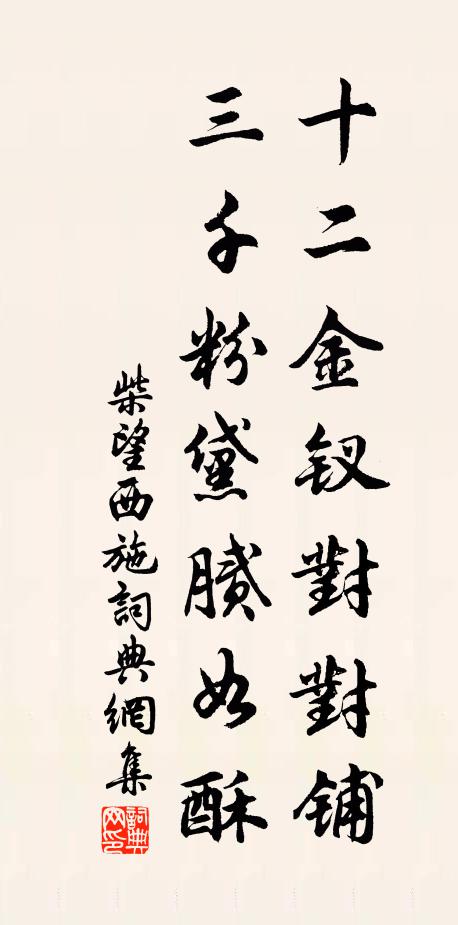 十二金钗對對铺
三千粉黛膩如酥
柴望西施詞典網集
詞典網印